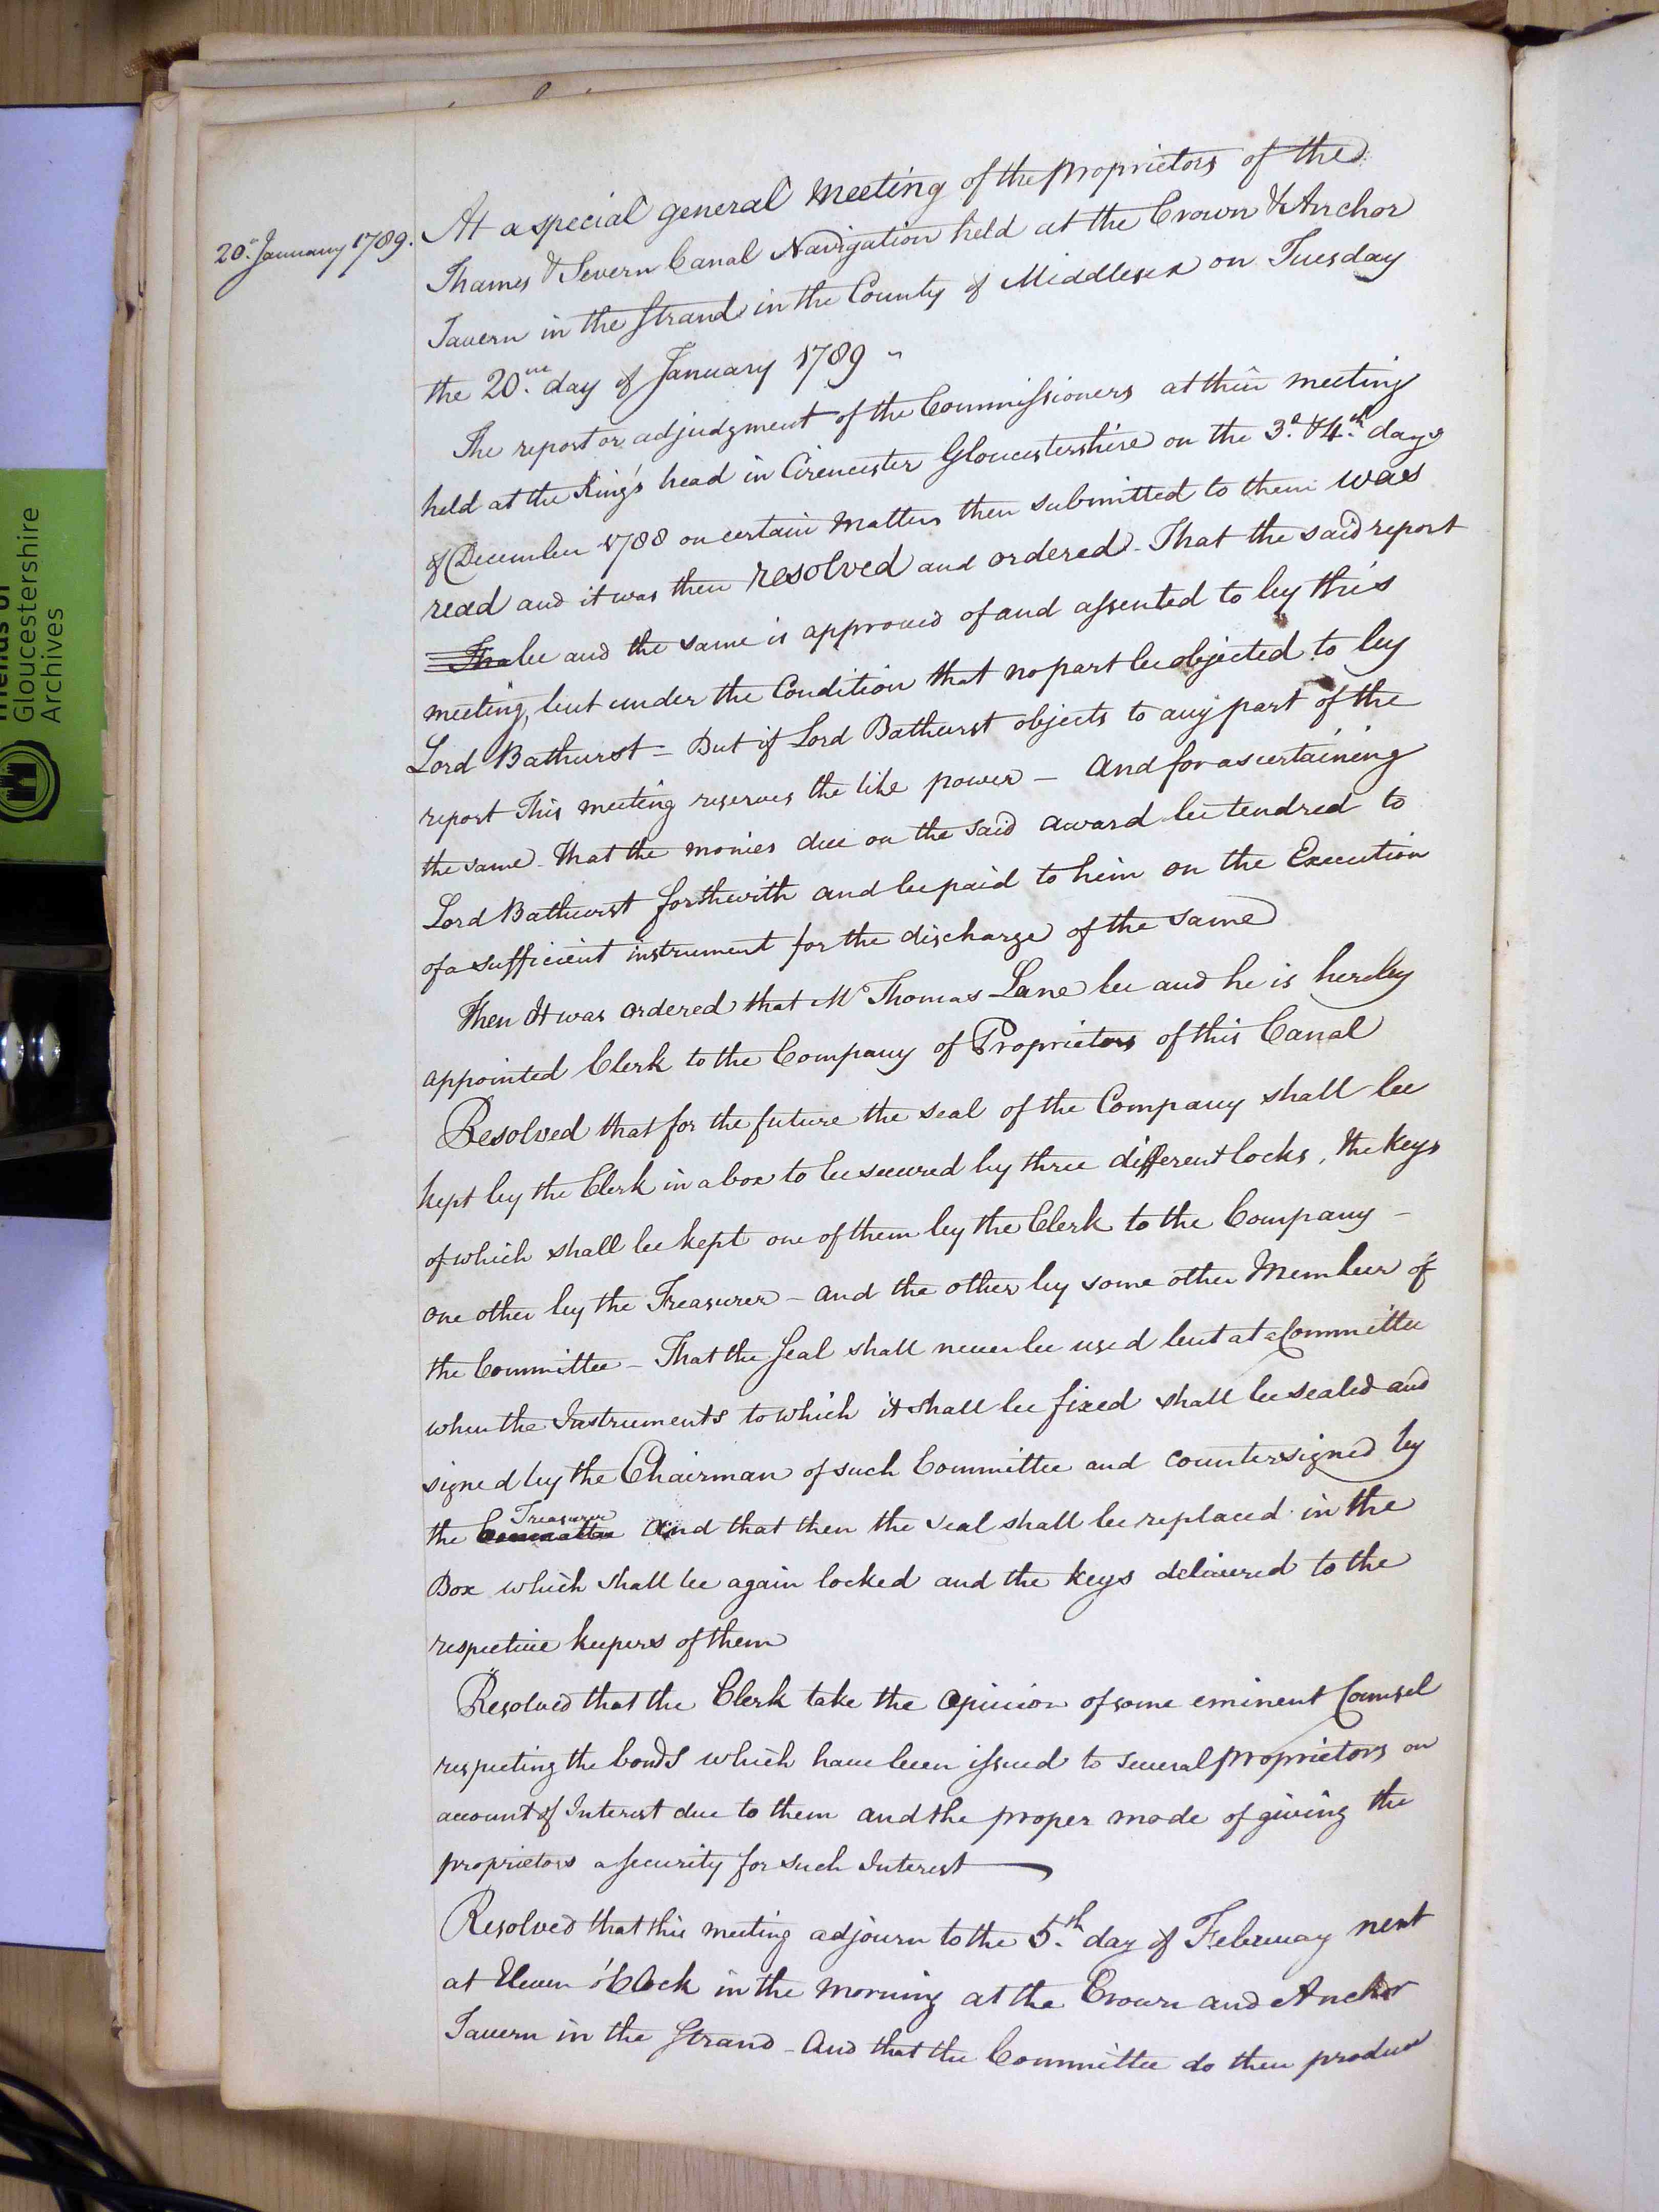 20th January 1789.
At a special general Meeting of the proprietors of the
Thames & Severn Canal Navigation held at the Crown & Anchor
Tavern in the Strand in the County of Middlesex on Tuesday
the 20th day of January 1789
The report or adjudgment of the Commissioners at their meeting
held at the King's head in Cirencester Gloucestershire on the 3d & 4th days
of December 1788 on certain Matters then submitted to them was
read and it was then resolved and ordered - That the said report
Tha be and the same is approved of and assented to by this
meeting, but under the Condition that no part be objected to by
Lord Bathurst - But if Lord Bathurst objects to any part of the
report This meeting reserves the like power - And for ascertaining
the same - That the monies due on the said award be tendred to
Lord Bathurst forthwith and be paid to him on the Execution
of a sufficient instrument for the discharge of the same
Then It was ordered that Mr Thomas Lane be and he is hereby
appointed Clerk to the Company of Proprietors of this Canal
Resolved that for the future the seal of the Company shall be
kept by the Clerk in a box to be secured by three different locks, the keys
of which shall be kept one of them by the Clerk to the Company -
one other by the Treasurer - and the other by some other Member of
the Committee - That the Seal shall never be used but at a Committee
when the Instruments to which it shall be fixed shall be sealed and
signed by the Chairman of such Committee and countersigned by
the Committee Treasurer And that then the seal shall be replaced in the
Box which shall be again locked and the keys delivered to the
respective keepers of them
Resolved that the Clerk take the Opinion of some eminent Counsel
respecting the bonds which have been issued to several proprietors on
account of Interest due to them and the proper mode of giving the
proprietors a security for such Interest
Resolved that this meeting adjourn to the 5th day of February next
at Eleven o'Clock in the morning at the Crown and Anchor
Tavern in the Strand - And that the Committee do then produce
Friends of
Gloucestershire
Archives